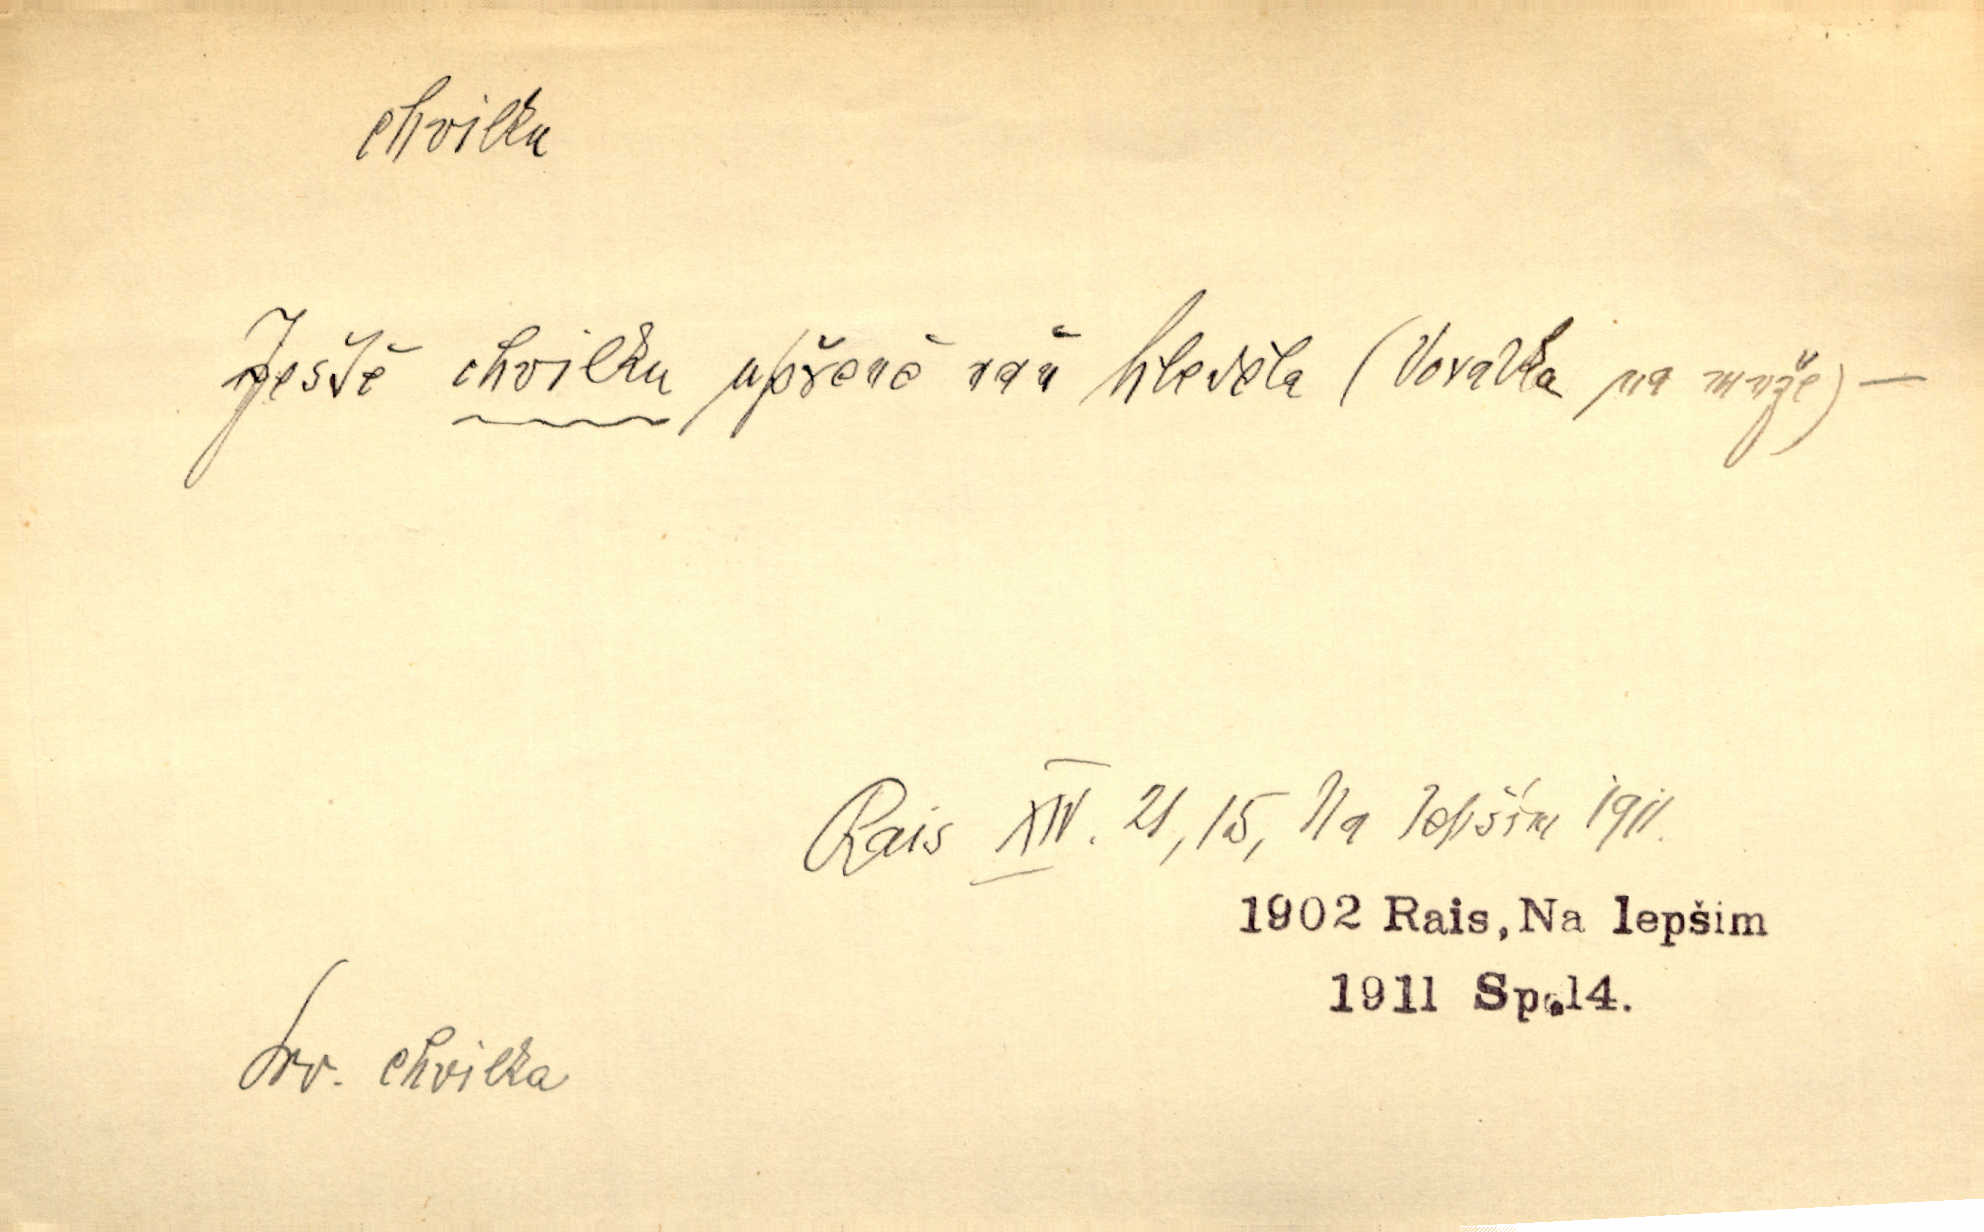 chvilku
Ještě chvilku upřeně naň hleděla (Vovalka na muže) —
Rais XIV. 21, 15, Na lepším 1911.
1902 Rais, Na lepším
1911 Sp. 14.
Srv. chvilka